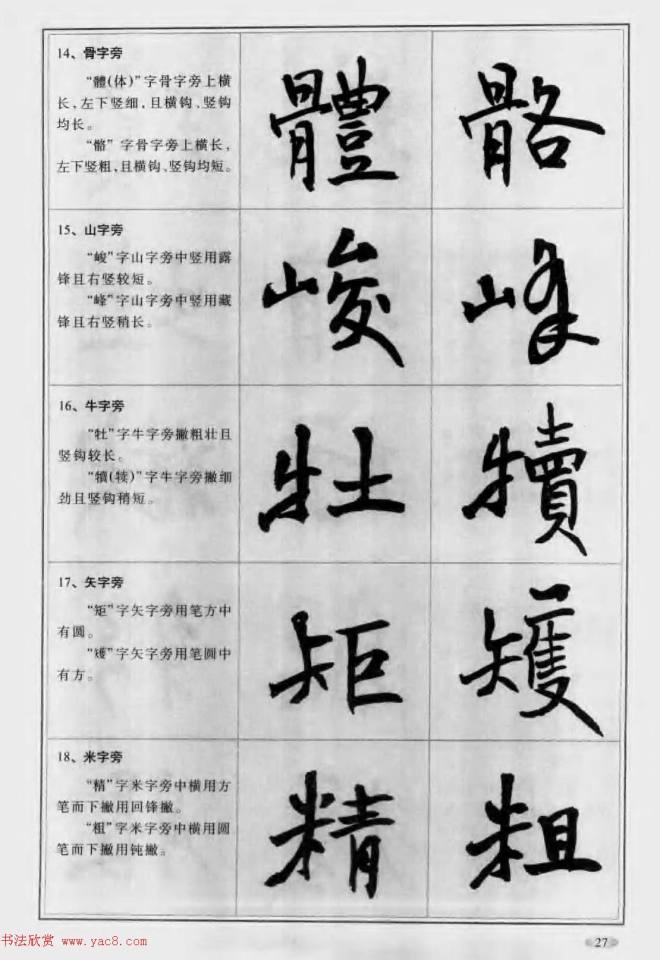 14、骨字旁
“體(体)”字骨字旁上横
长,左下竖细,且横钩、竖钩
均长。
“骼”字骨字旁上横长,
左下竖粗,且横钩、竖钩均短。
體 骼
15、山字旁
“峻”字山字旁中竖用露
锋且右竖较短。
“峰”字山字旁中竖用藏
锋且右竖稍长。
峻 峰
16、牛字旁
“牡”字牛字旁撇粗壮且
竖钩较长。
“犢(犊)”字牛字旁撇细
劲且竖钩稍短。
牡 犢
17、矢字旁
“矩”字矢字旁用笔方中
有圆。
“矱”字矢字旁用笔圆中
有方。
矩 矱
18、米字旁
“精”字米字旁中横用方
笔而下撇用回锋撇。
“粗”字米字旁中横用圆
笔而下撇用钝撇。
精 粗
书法欣赏 www.yac8.com
27